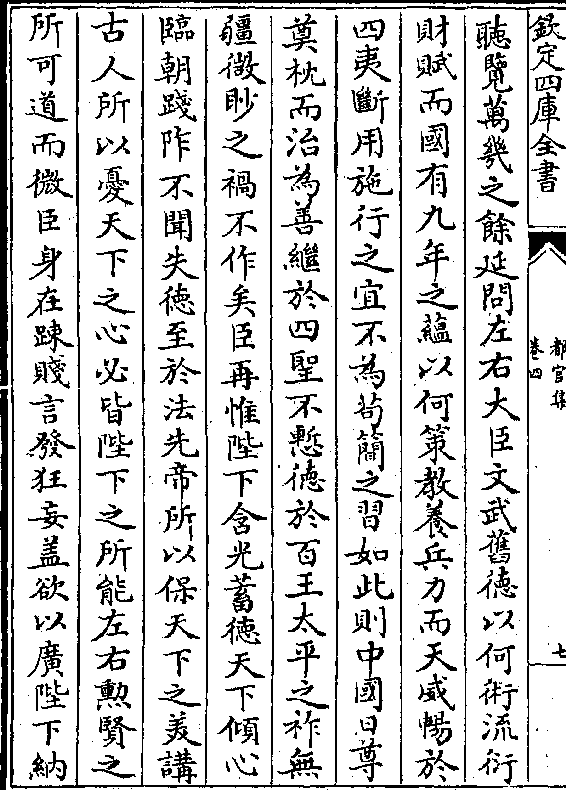 欽定四庫全書
都官集
卷四
七
聴覽萬幾之餘延問左右大臣文武舊徳以何術流衍
財賦而國有九年之蘊以何策教養兵力而天威暢於
四夷斷用施行之宜不為茍簡之習如此則中國日尊
奠枕而治為善繼於四聖不慙徳於百王太平之祚無
疆微眇之禍不作矣臣再惟陛下含光蓄徳天下傾心
臨朝踐阼不聞失徳至於法先帝所以保天下之羙講
古人所以憂天下之心必皆陛下之所能左右勲賢之
所可道而微臣身在踈賤言發狂妄盖欲以廣陛下納